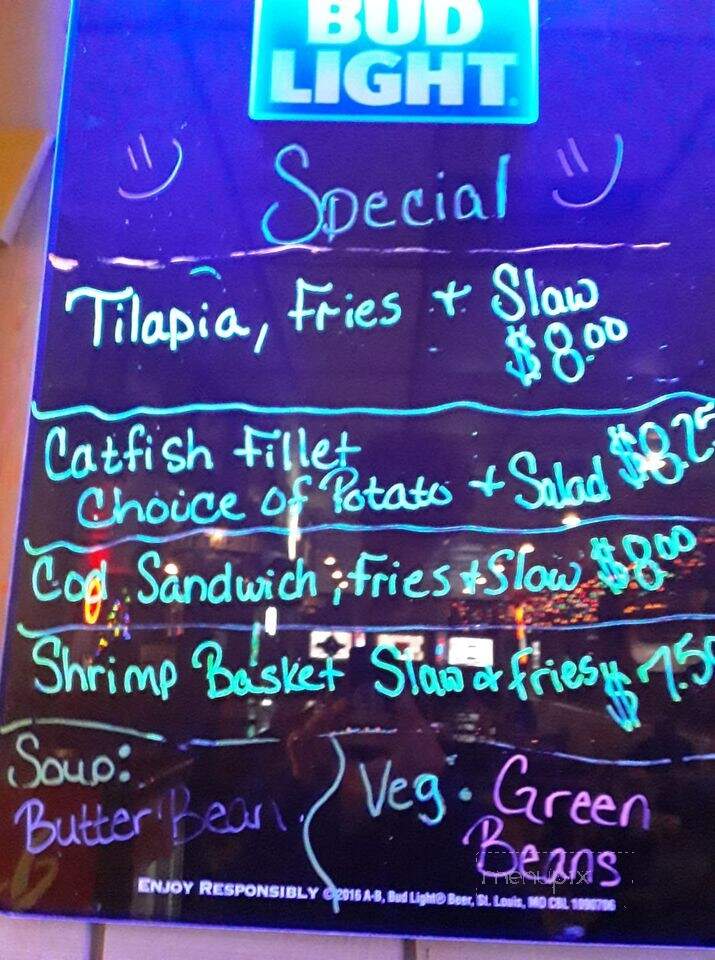 BUD
LIGHT
Special
Tilapia, Fries + Slaw
$8.00
Catfish Fillet
Choice of Potato + Salad $8.25
Cod Sandwich, Fries + Slaw $8.00
Shrimp Basket Slaw & fries $7.50
Soup:
Butter Bean.
Veg. Green
Beans
menupix
ENJOY RESPONSIBLY ©2016 A-B, Bud Light® Beer, St. Louis, MO CBL 1090706